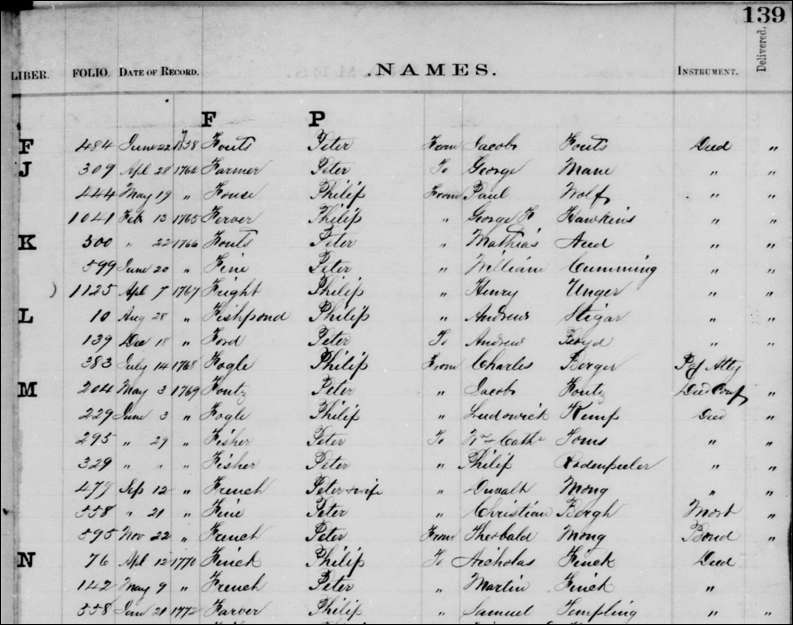 139
LIBER. FOLIO. DATE OF RECORD. NAMES. INSTRUMENT. Delivered.
F P
F 484 June 22 1738 Fouts Peter From Jacob Fouts Deed "
J 309 Apl 28 1764 Farmer Peter To George Mane " "
444 May 19 " House Philip From Paul Wolf " "
1041 Feb 13 1765 Ferver Philip " George F Hawkins " "
K 300 " 22 1766 Fouts Peter " Mathias " "
599 June 20 " Fine Peter " William Cumming " "
1125 Apl 7 1767 Fright Philip " Henry Unger " "
L 10 Aug 28 " Fishpond Philip " Andrew Stegar " "
139 Dec 18 " Ford Peter To Andrew Boyd " "
383 July 14 1768 Fogle Philip From Charles Berger P of Atty
M 204 May 3 1769 Foutz Peter " Jacob Foutz Deed Conf "
229 June 3 " Fogle Philip " Ludowick Kemp Deed "
295 " 29 " Fisher Peter To Wm Cathe Toms " "
329 " " " Fisher Peter " Philip Rodenpeeler " "
479 Sep 12 " French Peter & wife " Duvalt Mong " "
558 " 21 " Fine Peter " Christian Bergh Mort "
595 Nov 22 " French Peter From Theobald Mong Bond "
N 76 Apl 12 1770 Finck Philip To Nicholas Finck Deed "
142 May 9 " French Peter " Martin Finck "
558 Jan 21 1772 Farver Philip " Samuel Templing " "